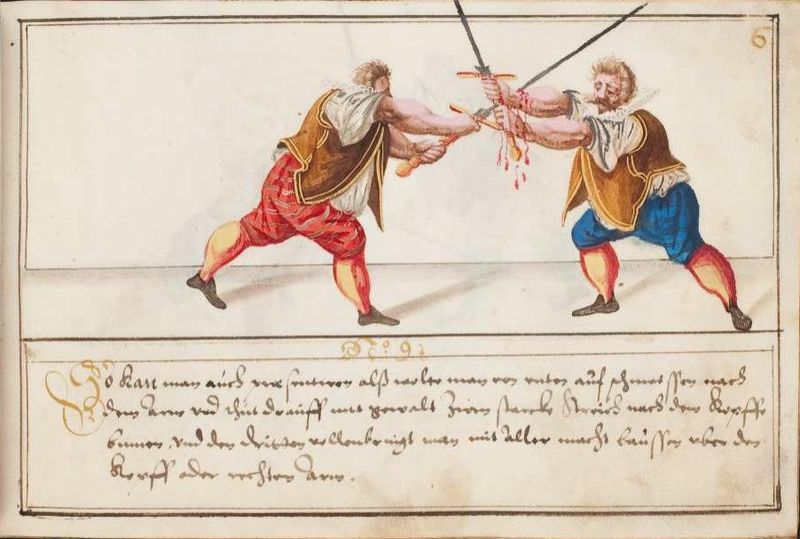 6
No: 9:
So kan man auch pre sentiren alß wolte man von unten auf schmeissen nach
dem Arm und thut drauff mit gewalt Zwen starcke streich nach dem Kopffe
binnen, und den dritten vollenbringt man mit aller macht baussen uber den
Kopff oder rechten Arm.